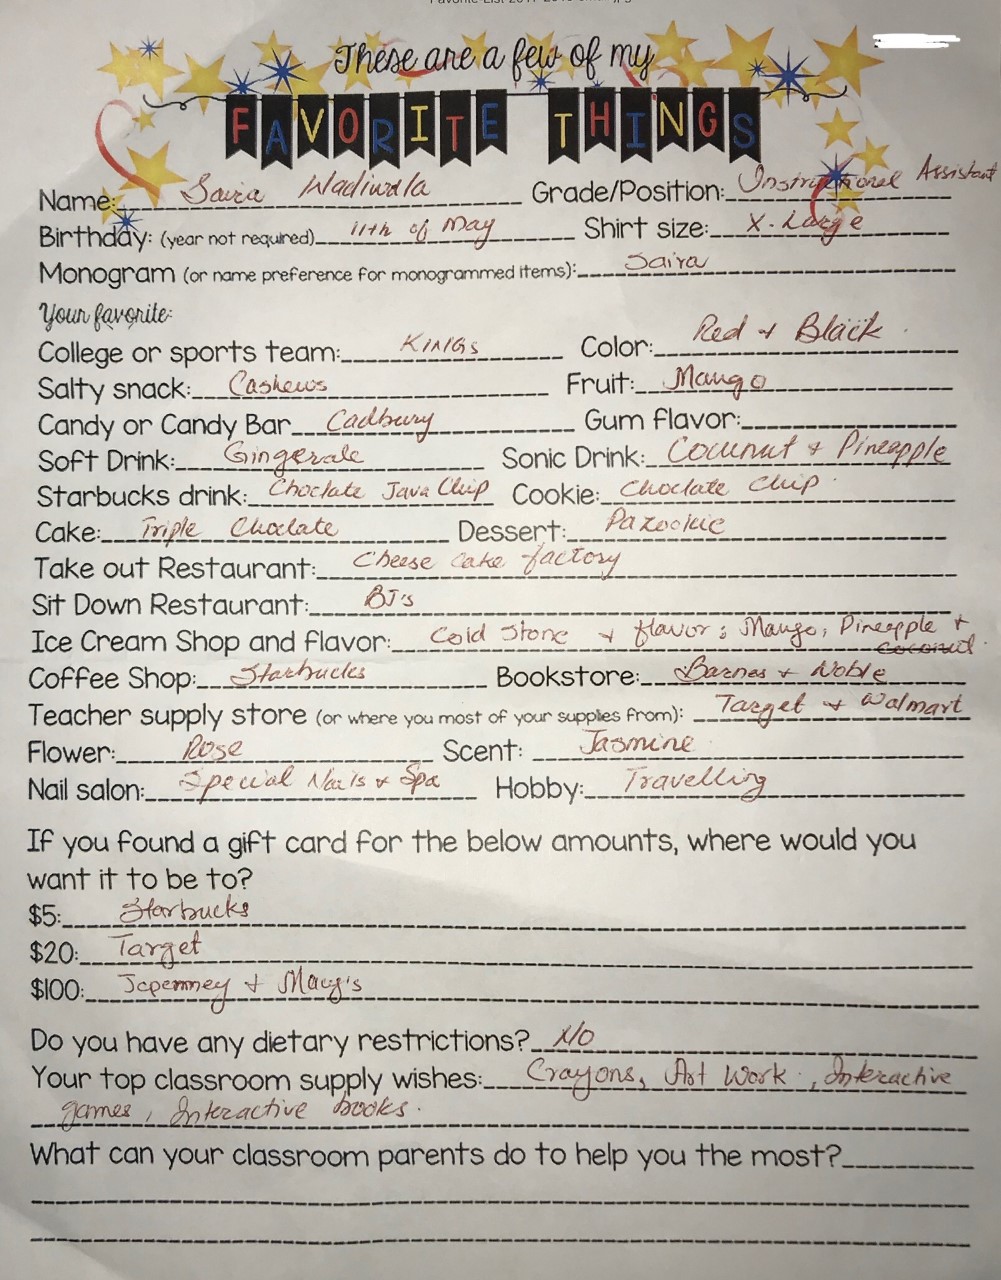 These are a few of my
FAVORITE THINGS
Name: Saira Wadiwala Grade/Position: Instructional Assistant
Birthday: (year not required) 11th of May Shirt size: X-Large
Monogram (or name preference for monogrammed items): Saira
Your favorite:
College or sports team: KINGS Color: Red + Black
Salty snack: Cashews Fruit: Mango
Candy or Candy Bar Cadbury Gum flavor:
Soft Drink: Gingerale Sonic Drink: Coconut + Pineapple
Starbucks drink: Choclate Java Chip Cookie: Choclate Chip
Cake: Triple Choclate Dessert: Pazookie
Take out Restaurant: Cheese cake factory
Sit Down Restaurant: BJ's
Ice Cream Shop and flavor: Cold Stone + flavor: Mango, Pineapple + coconut.
Coffee Shop: Starbucks Bookstore: Barnes + Noble
Teacher supply store (or where you most of your supplies from): Target + Walmart
Flower: Rose Scent: Jasmine
Nail salon: Special Nails & Spa Hobby: Travelling
If you found a gift card for the below amounts, where would you
want it to be to?
$5: Starbucks
$20: Target
$100: Jcpenney + Macy's
Do you have any dietary restrictions? No
Your top classroom supply wishes: Crayons, Art Work, Interactive
games, Interactive books.
What can your classroom parents do to help you the most?